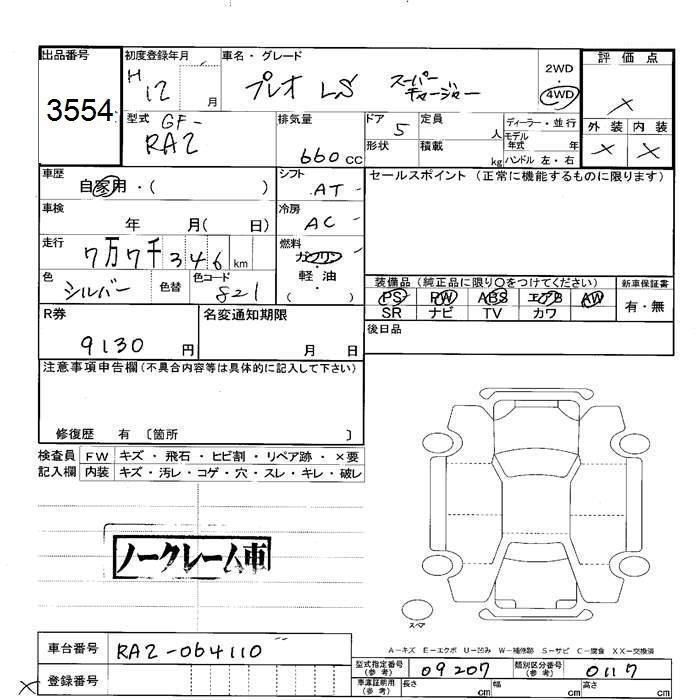 出品番号
3554
初度登録年月
H 12 月
車名・グレード
プレオ LS スーパーチャージャー
2WD
・
4WD
評価点
×
外装 内装
× ×
型式 GF-
RA2
排気量
660 cc
ドア 5
形状
定員 人
積載 kg
ディーラー・並行
モデル年式 年
ハンドル 左・右
車歴
自家用・( )
シフト
AT
セールスポイント (正常に機能するものに限ります)
車検
年 月( 日)
冷房
AC
走行
7万7千346 km
燃料
ガソリン
・
軽油
( )
色
シルバー
色替
色コード
821
装備品 (純正品に限り○をつけてください)
新車保証書
PS PW ABS エアB AW
有・無
SR ナビ TV カワ
R券
9130 円
名変通知期限
月 日
後日品
注意事項申告欄 (不具合内容等は具体的に記入して下さい)
修復歴 有 〔箇所 〕
検査員
記入欄
FW キズ・飛石・ヒビ割・リペア跡・×要
内装 キズ・汚レ・コゲ・穴・スレ・キレ・破レ
ノークレーム車
スペア
A-キズ E-エクボ U-凹み W-補修跡 S-サビ C-腐食 XX-交換済
車台番号 RA2-064110
登録番号
×
型式指定番号
(参考)
09207
類別区分番号
(参考)
0117
車庫証明用
(参考)
長さ cm
幅 cm
高さ cm